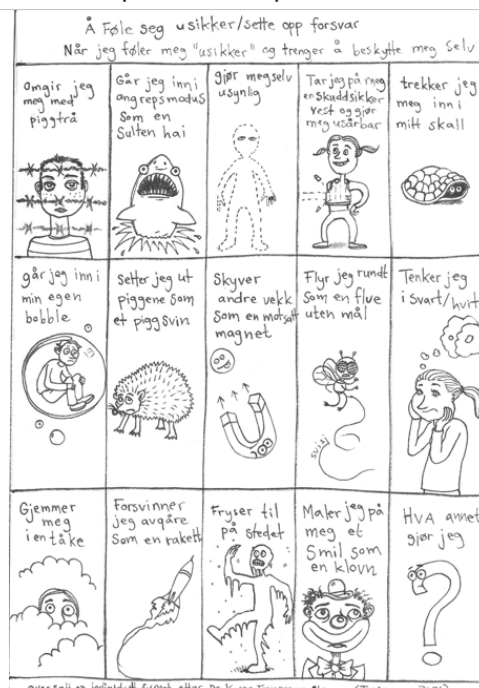 Å Føle seg usikker/sette opp forsvar
Når jeg føler meg "usikker" og trenger å beskytte meg selv
omgir jeg
meg med
piggtrå
Går jeg inn i
angrepsmodus
som en
sulten hai
gjør meg selv
usynlig
Tar jeg på meg
en skuddsikker
vest og gjør
meg usårbar
trekker jeg
meg inn i
mitt skall
går jeg inn i
min egen
bobble
Setter jeg ut
piggene som
et piggsvin
Skyver
andre vekk
som en motsatt
magnet
Flyr jeg rundt
som en flue
uten mål
svisj
Tenker jeg
i svart/hvitt
Gjemmer
meg
i en tåke
Forsvinner
jeg avgåre
som en rakett
Fryser til
på stedet
Maler jeg på
meg et
smil som
en klovn
HVA annet
gjør jeg